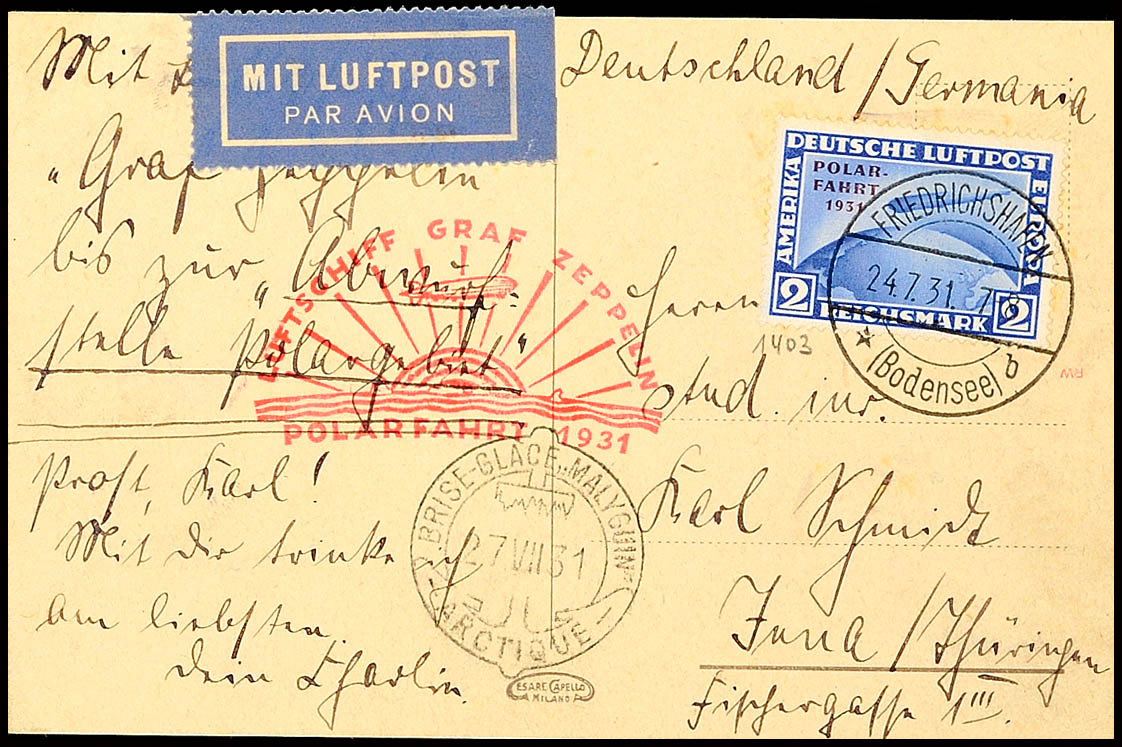 Mit
MIT LUFTPOST
PAR AVION
"Graf Zeppelin
bis zur "Abwurf-
stelle Polargebiet"
Prost, Karl!
Mit dir trinke ich
am liebsten.
Dein Charlie.
LUFTSCHIFF GRAF ZEPPELIN
POLARFAHRT 1931
BRISE-GLACE „MALYGUIN"
27 VII 31
ARCTIQUE
CESARE CAPELLO
MILANO
Deutschland / Germania
DEUTSCHE LUFTPOST
AMERIKA
EUROPA
POLAR-
FAHRT
1931
2 REICHSMARK 2
FRIEDRICHSHAFEN
24.7.31. 7-8
(Bodensee) b
1403
Herrn
stud. iur.
Karl Schmidt
Jena / Thüringen
Fischergasse 1III.